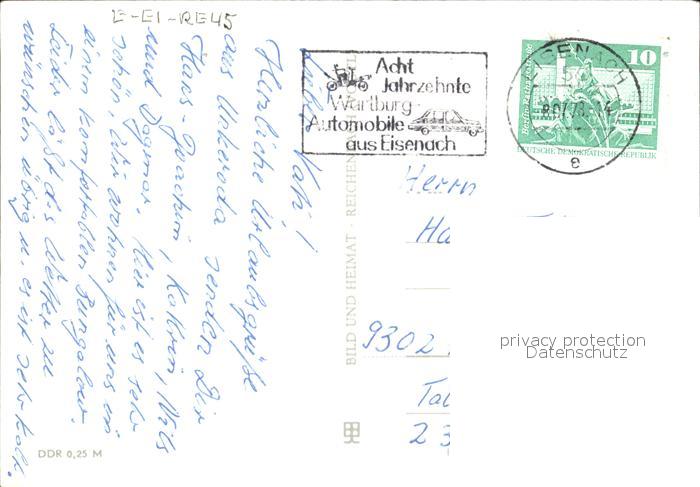 E-E1-RE45
Lieber Kati!
Herzliche Urlaubsgrüße
aus Unkeroda senden Dir
Hans Joachim, Kathrin, Nils
und Dagmar. Hier ist es sehr
schön. Wir wohnen für uns in
einem komfortablen Bungalow.
Leider läßt das Wetter zu
wünschen übrig u. es ist sehr kalt.
DDR 0,25 M
BILD UND HEIMAT · REICHENBACH
Acht
Jahrzehnte
Wartburg-
Automobile
aus Eisenach
EISENACH
10
Berlin-Rathausstraße
DEUTSCHE DEMOKRATISCHE REPUBLIK
e
Herrn
Ha
9302
Ta
23
privacy protection
Datenschutz